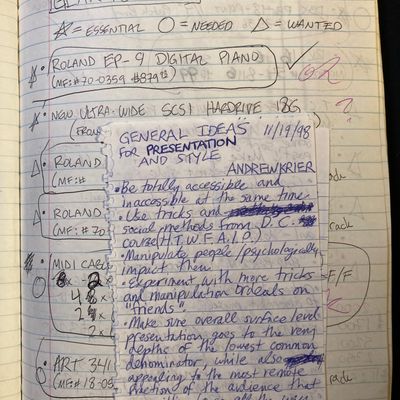 ☆ = ESSENTIAL ○ = NEEDED △ = WANTED
ROLAND EP-9 DIGITAL PIANO
(MF:#70-0359 $879
NEW ULTRA-WIDE SCSI HARDRIVE 18G
(FROM
ROLAND
(MF:#
ROLAND
(MF:# 70
MIDI CABL
2x
ART 341
(MF:# 18-05
F/F
GENERAL IDEAS 11/19/98
FOR PRESENTATION
AND STYLE
ANDREW KRIER
• Be totally accessible and
inaccessible at the same time.
• Use tricks and
social methods from D.C.
course (H.T.W.F.A.I.P.)
• Manipulate people/psychologically
impact them
• Experiment with more tricks
and manipulation ordeals on
"friends".
• Make sure overall surface level
presentation goes to the very
depths of the lowest common
denominator, while also
appealing to the most remote
fraction of the audience that